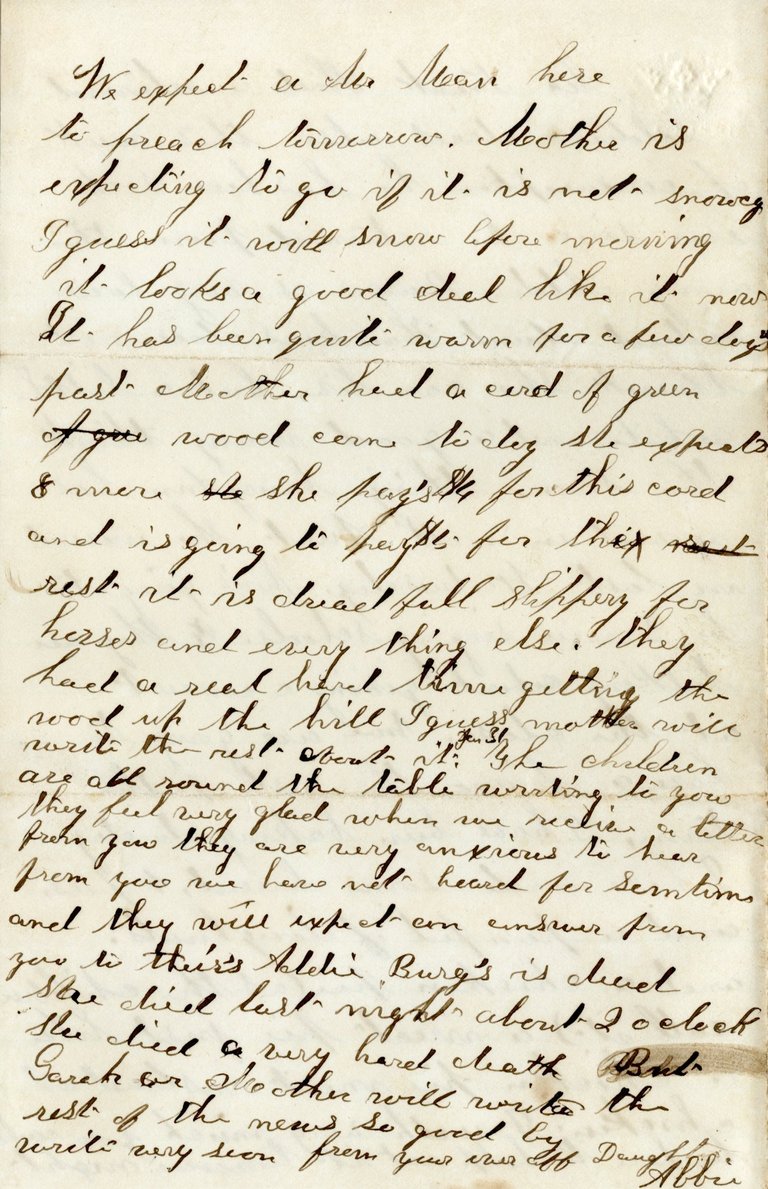 We expect a Mr Man here
to preach tomarrow. Mother is
expecting to go if it is not snowey
I guess it will snow before morning
it looks a good deel like it now
It has been quite warm for a few days
past Mother had a cord of green
wood come to day she expects
8 more she pay's $4 for this cord
and is going to pay $5 for the
rest it is dread full slippery for
horses and every thing else. they
had a real hard time getting the
wood up the hill I guess mother will
write the rest about it. The children
are all round the table writing to you
they feel very glad when we recive a letter
from you they are very anxious to hear
from you we have not heard for somtime
and they will expect an answer from
you to theirs Addie Burg's is dead
she died last night about 2 o clock
she died a very hard death But
Sarah or Mother will write the
rest of the news so good by
write very soon from your ever aff Daughter
Abbie